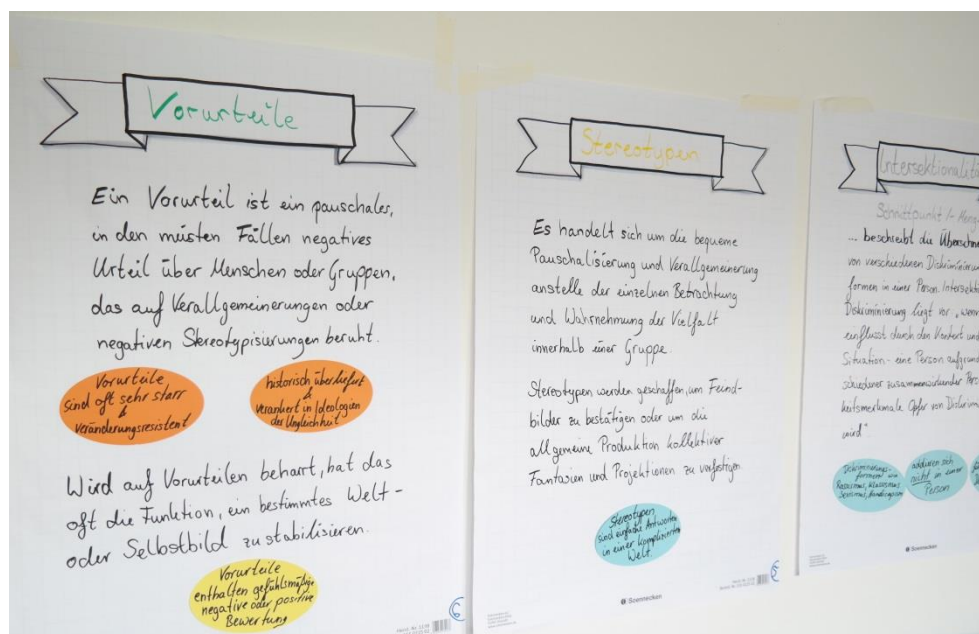 Vorurteile
Ein Vorurteil ist ein pauschales,
in den meisten Fällen negatives
Urteil über Menschen oder Gruppen,
das auf Verallgemeinerungen oder
negativen Stereotypisierungen beruht.
Vorurteile
sind oft sehr starr
&
veränderungsresistent
historisch überliefert
&
verankert in Ideologien
der Ungleichheit
Wird auf Vorurteilen beharrt, hat das
oft die Funktion, ein bestimmtes Welt-
oder Selbstbild zu stabilisieren.
Vorurteile
enthalten gefühlsmäßige
negative oder positive
Bewertung
Stereotypen
Es handelt sich um die bequeme
Pauschalisierung und Verallgemeinerung
anstelle der einzelnen Betrachtung
und Wahrnehmung der Vielfalt
innerhalb einer Gruppe.
Stereotypen werden geschaffen, um Feind-
bilder zu bestätigen oder um die
allgemeine Produktion kollektiver
Fantasien und Projektionen zu verfestigen.
Stereotypen
sind einfache Antworten
in einer komplizierten
Welt
Soennecken
Intersektionalitä
Schnittpunkt /- Meng
... beschreibt die Überschne
von verschiedenen Diskriminierun
formen in einer Person. Intersekti
Diskriminierung liegt vor „wenn
einflusst durch den Kontext und
Situation - eine Person aufgrund
schiedener zusammenwirkender Persö
keitsmerkmale Opfer von Diskrimin
wird".
Diskriminierungs-
formen wie
Rassismus, Klassismus
Sexismus,
addieren sich
nicht in einer
Person
Soennecken